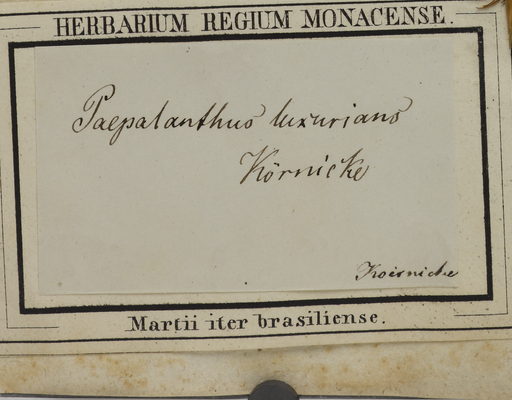 HERBARIUM REGIUM MONACENSE.
Paepalanthus luxurians
Körnicke
Koernicke
Martii iter brasiliense.